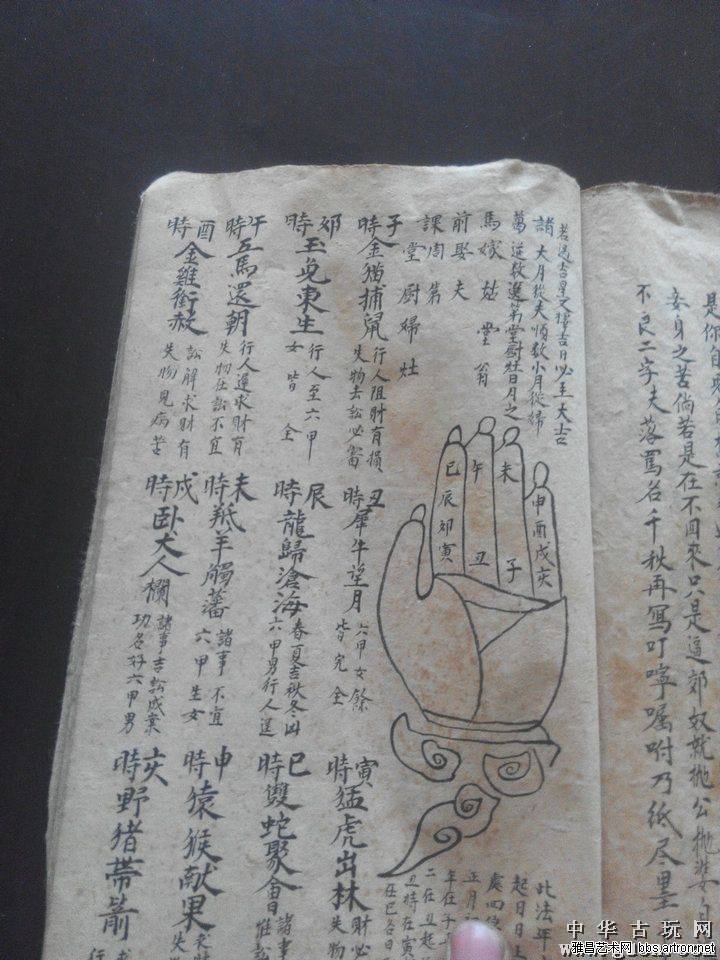 是你自
妾身之苦倘若是在不回來只是逼郊奴就抛公抛婆自
不良二字夫落罵名千秋再寫叮嚀囑咐乃紙尽墨
若遇吉星又接吉日必主大吉
諸 大月從夫順数小月從婦
第堂厨灶日月之
馬嫁姑堂翁
前娶夫
課周第
堂厨婦灶
申酉戌亥
未子
午丑
巳辰卯寅
此法年
起日日上
處四
正月
年在子
二在丑起
丑時在寅
子時金猫捕鼠
行人阻財有損
失物去訟必富
丑時犀牛望月
六甲女餘
皆完全
寅時猛虎出林
財必
失物
卯時玉兔東生
行人至六甲
女皆全
辰時龍歸滄海
春夏吉秋冬凶
六甲男行人還
巳時雙蛇聚會
諸事
午時五馬還朝
行人還求財有
失物在訟不宜
未時羝羊觸藩
諸事不宜
六甲生女
申時猿猴献果
求
失
酉時金雞銜赦
訟解求財有
失物見病苦
戌時卧犬人欄
諸事吉訟成業
功名好六甲男
亥時野猪帶箭
行
中华古玩网
雅昌艺术网 bbs.artron.net